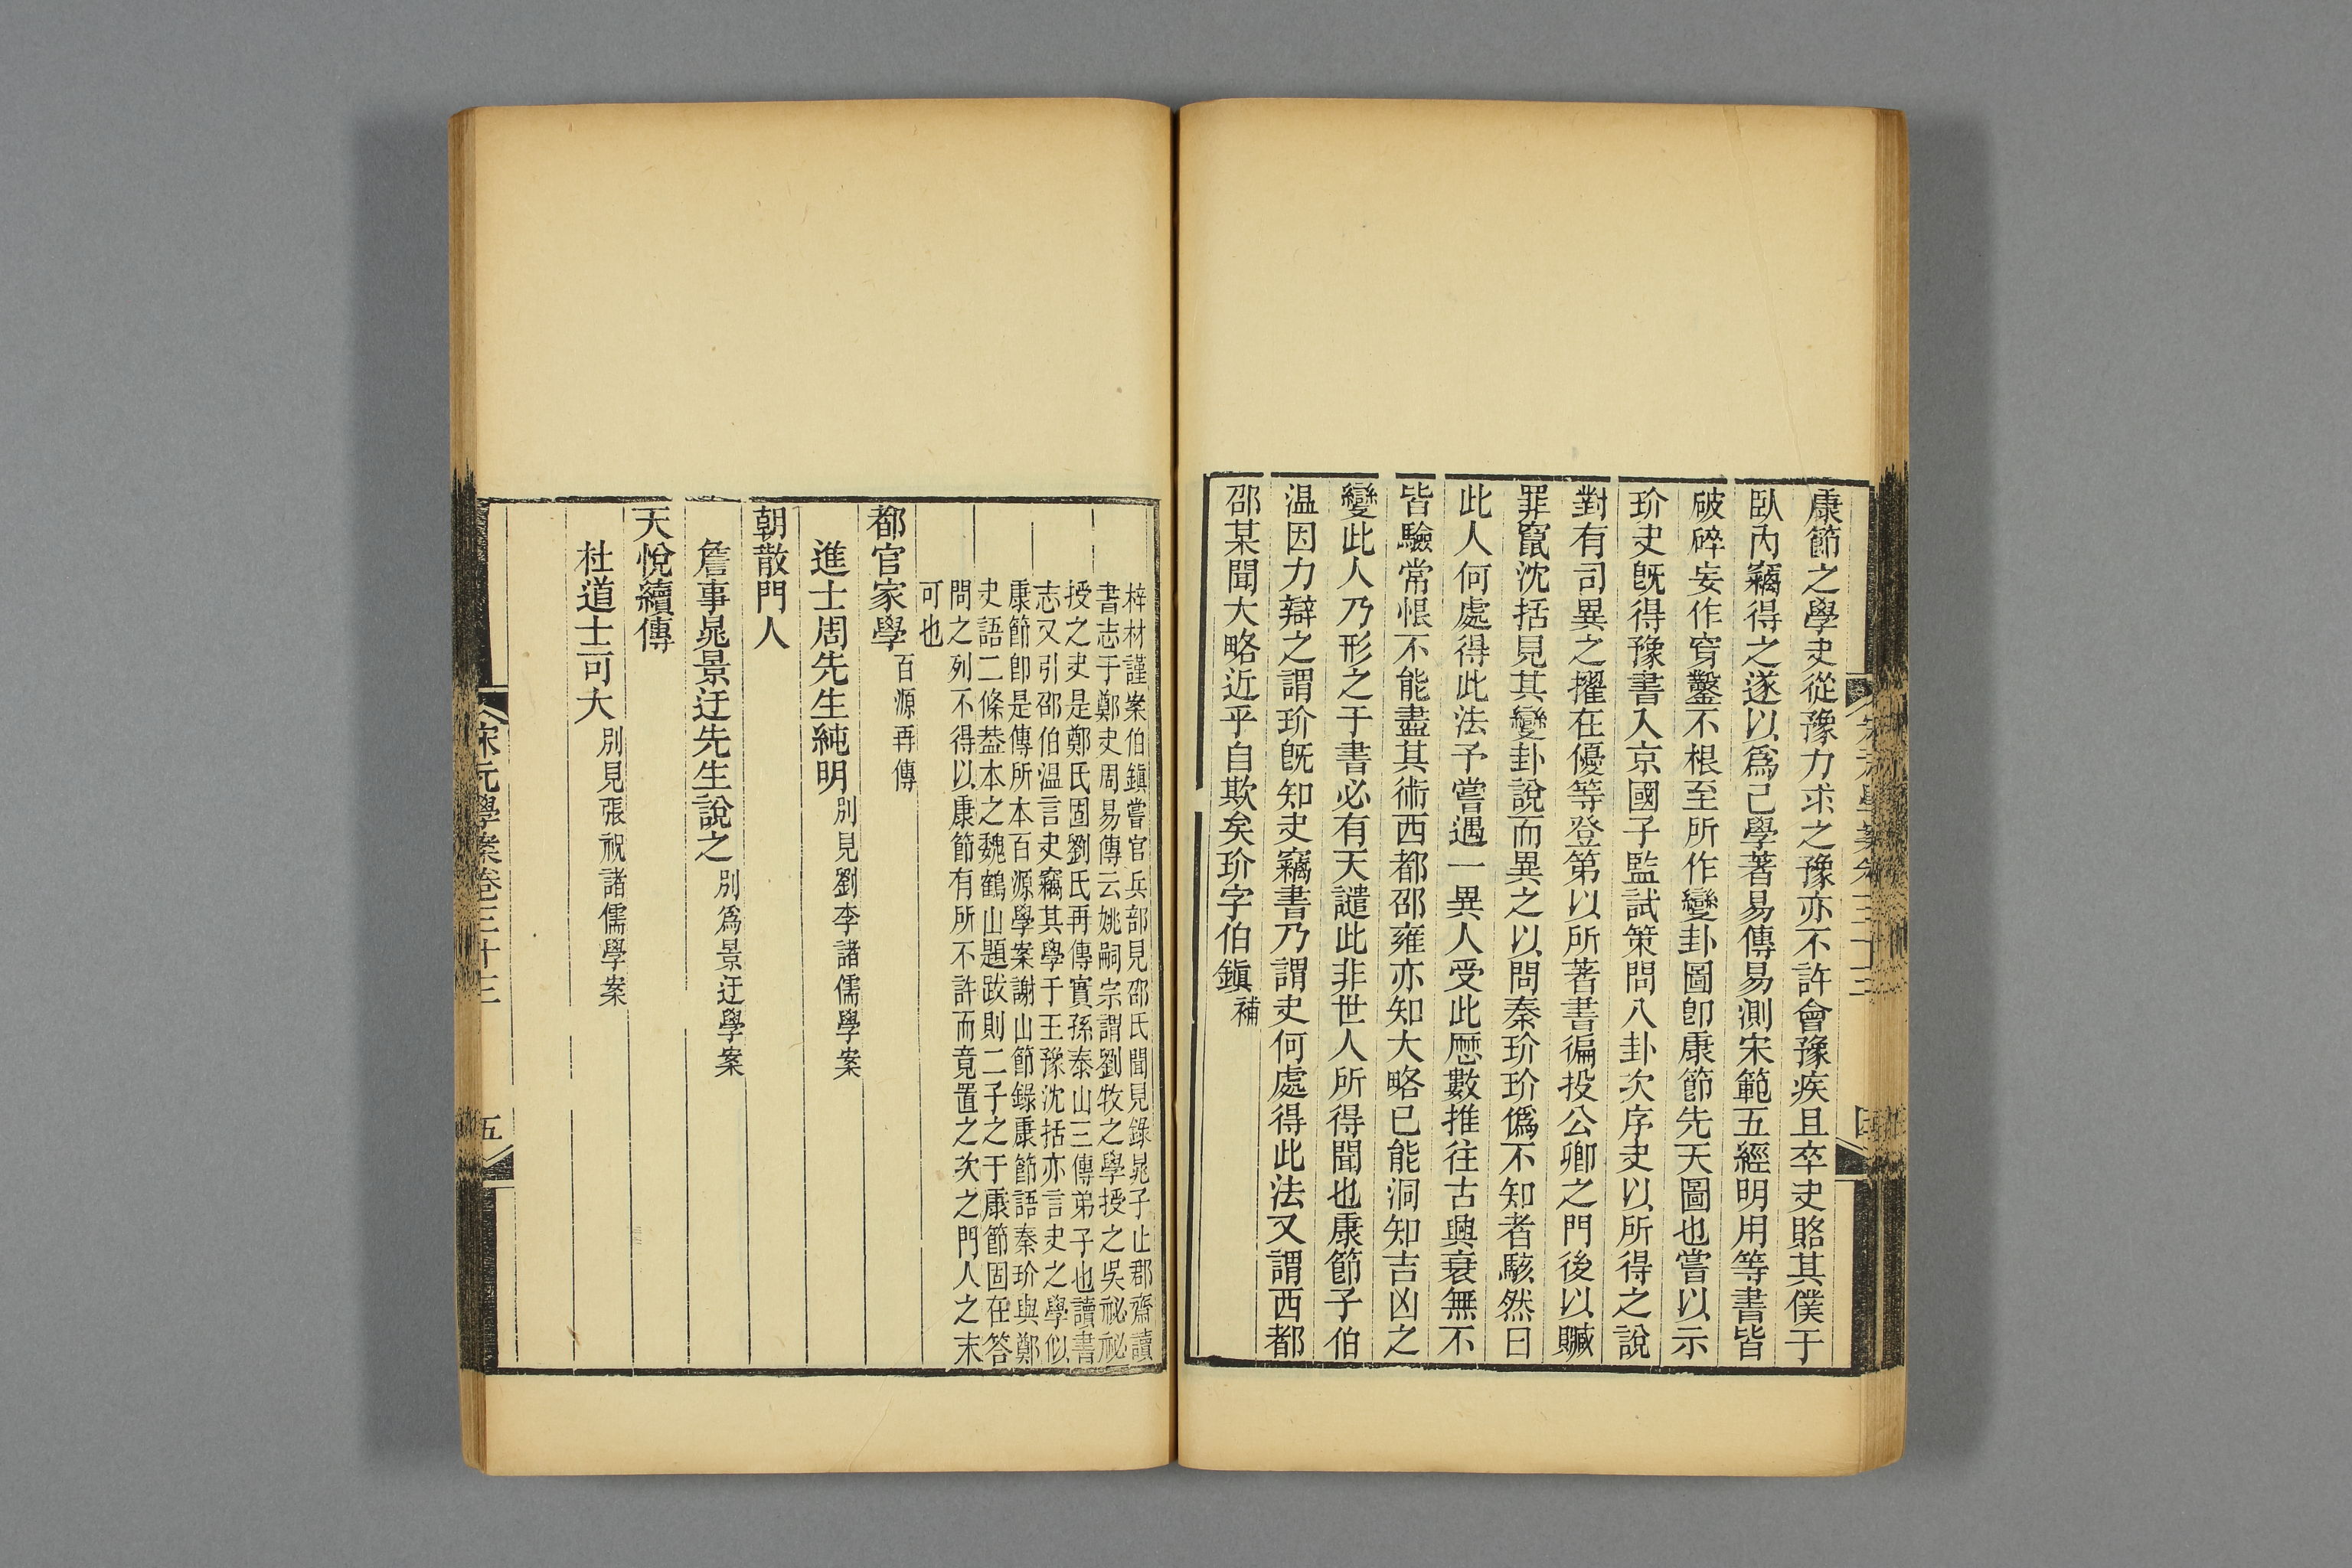 康節之學史從豫力求之豫亦不許會豫疾且卒史賂其僕于
臥內竊得之遂以爲己學著易傳易測宋範五經明用等書皆
破碎妄作穿鑿不根至所作變卦圖卽康節先天圖也嘗以示
玠史旣得豫書入京國子監試策問八卦次序史以所得之說
對有司異之擢在優等登第以所著書徧投公卿之門後以贓
罪竄沈括見其變卦說而異之以問秦玠玠僞不知者駭然曰
此人何處得此法予嘗遇一異人受此厯數推往古興衰無不
皆驗常恨不能盡其術西都邵雍亦知大略已能洞知吉凶之
變此人乃形之于書必有天譴此非世人所得聞也康節子伯
温因力辯之謂玠旣知史竊書乃謂史何處得此法又謂西都
邵某聞大略近乎自欺矣玠字伯鎭補
梓材謹案伯鎭嘗官兵部見邵氏聞見錄晁子止郡齋讀
書志于鄭史周易傳云姚嗣宗謂劉牧之學授之吳祕祕
授之史是鄭氏固劉氏再傳實孫泰山三傳弟子也讀書
志又引邵伯温言史竊其學于王豫沈括亦言史之學似
康節卽是傳所本百源學案謝山節錄康節語秦玠與鄭
史語二條葢本之魏鶴山題跋則二子之于康節固在答
問之列不得以康節有所不許而竟置之次之門人之末
可也
都官家學百源再傳
進士周先生純明別見劉李諸儒學案
朝散門人
詹事晁景迂先生說之別爲景迂學案
天悅續傳
杜道士可大別見張祝諸儒學案
宋元學案卷三十三
五